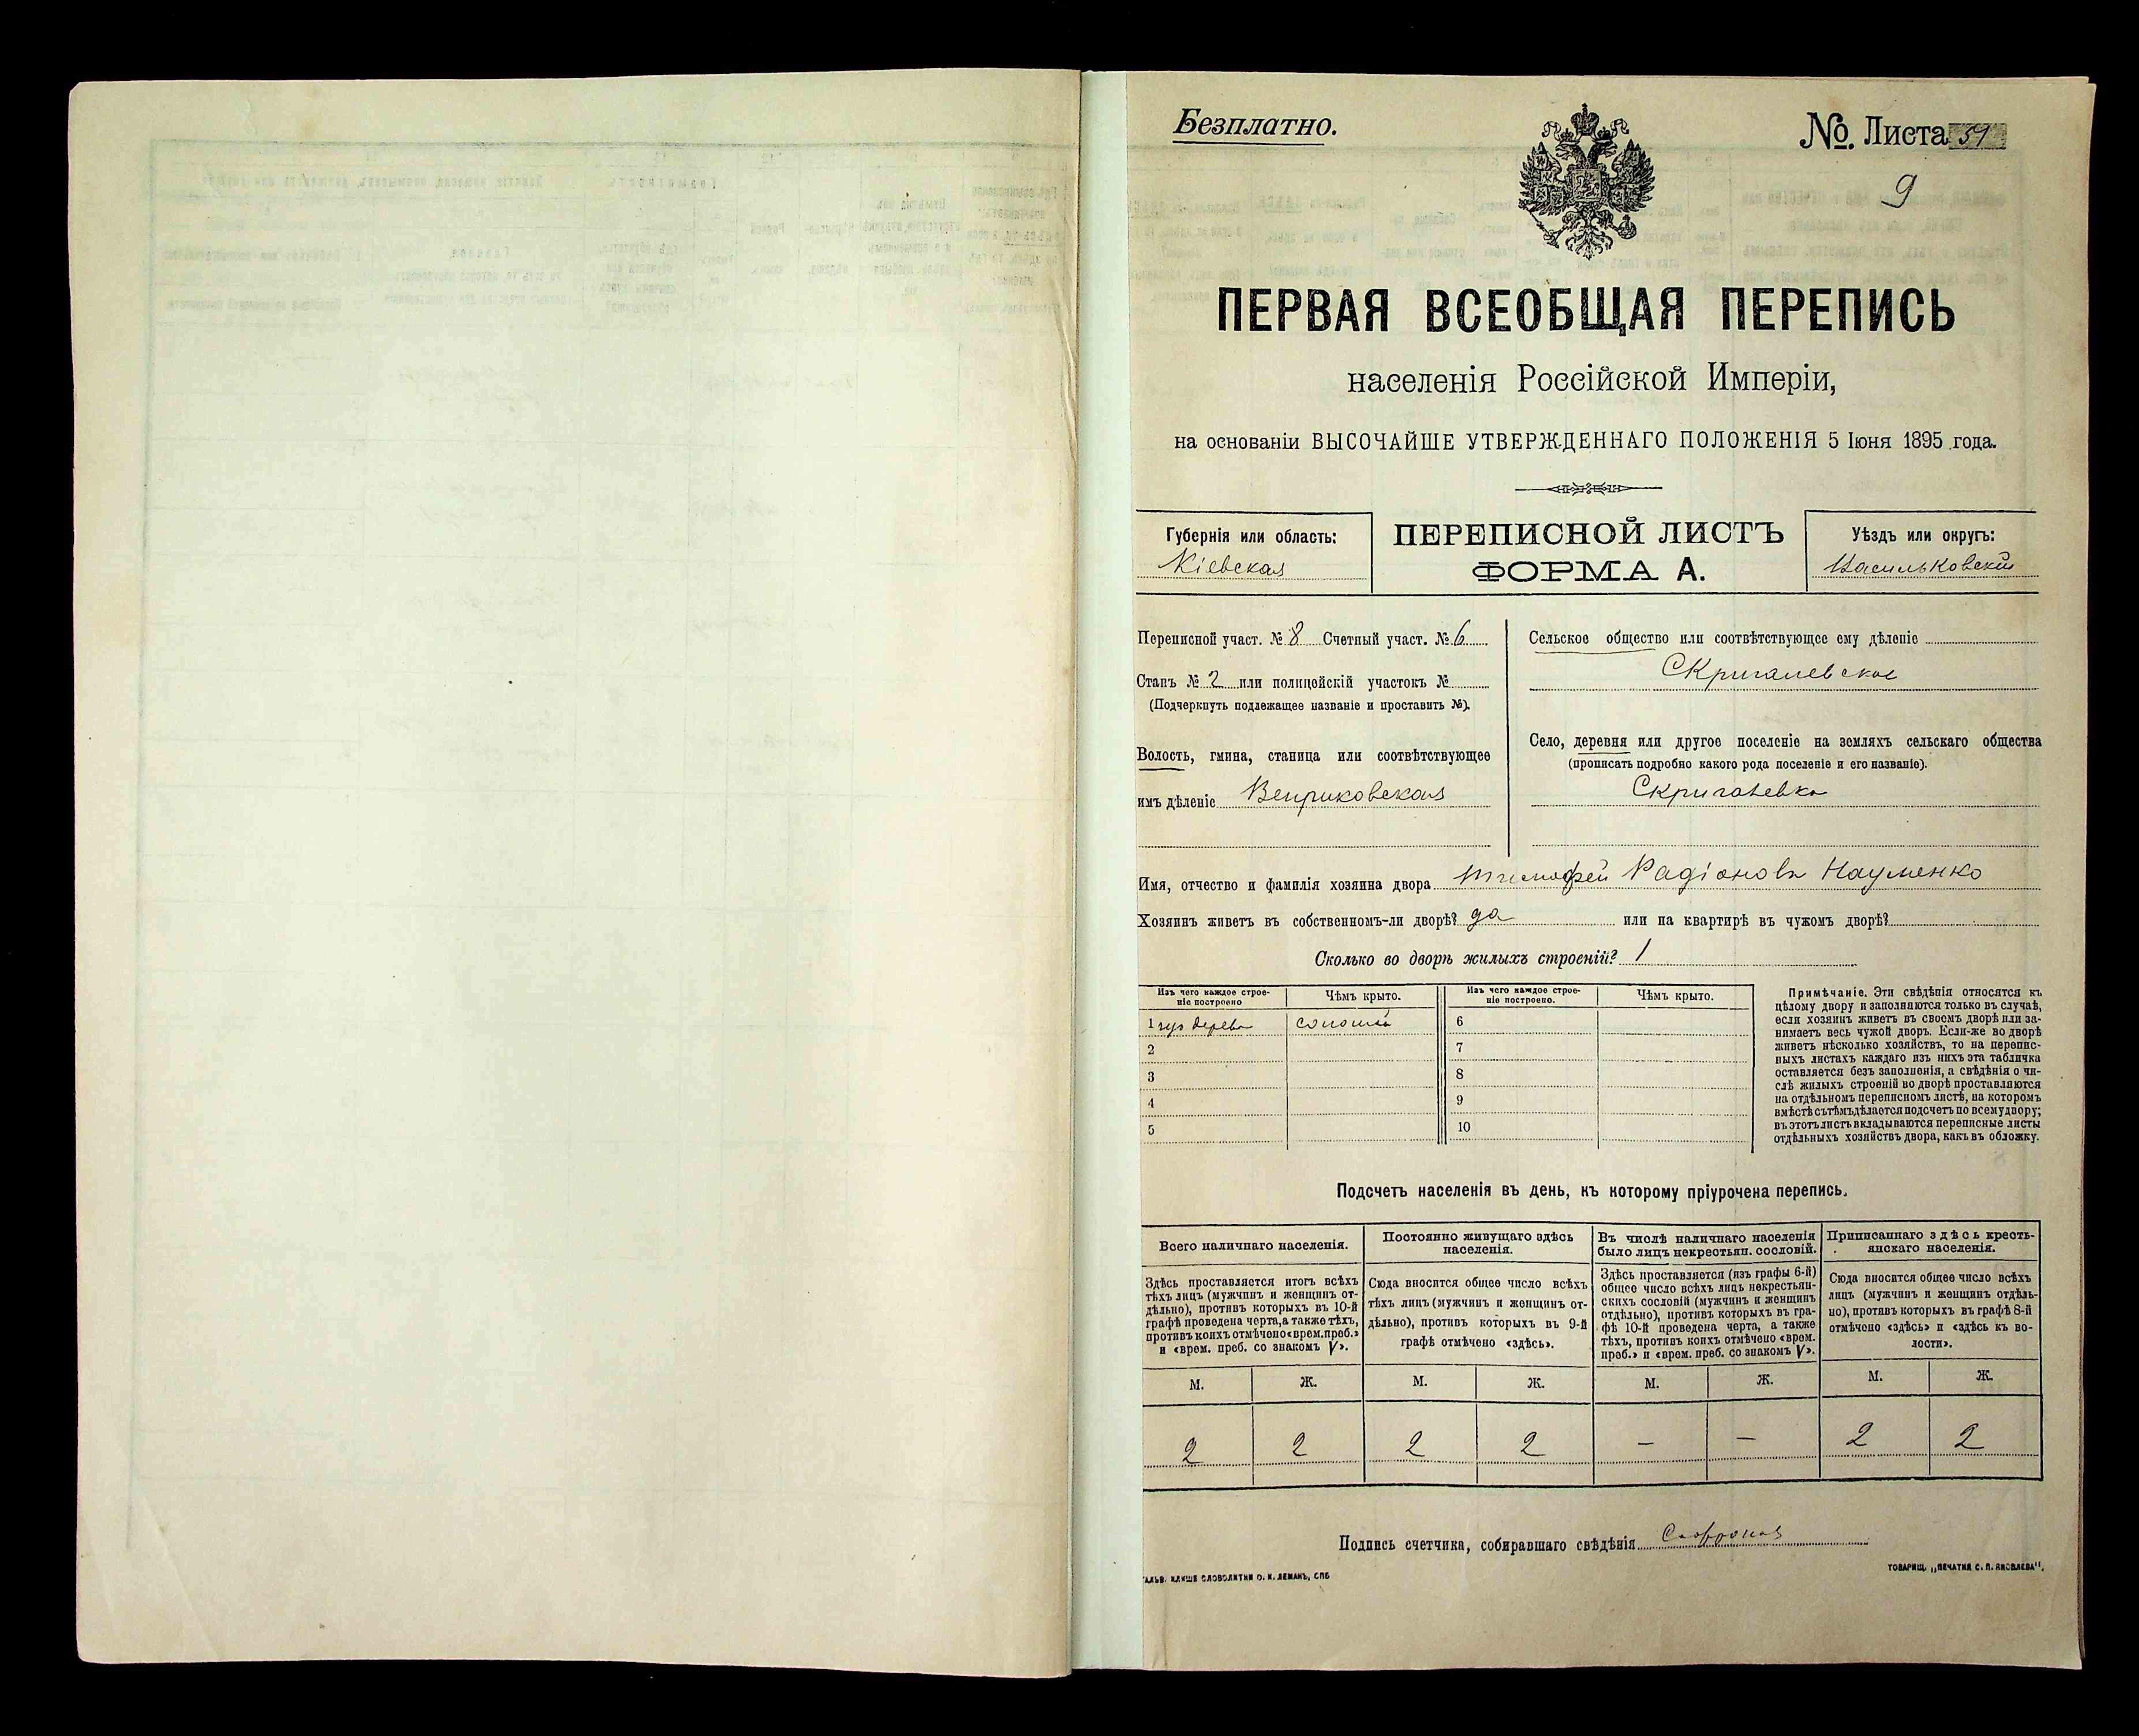 Безплатно.
№. Листа 51
9
ПЕРВАЯ ВСЕОБЩАЯ ПЕРЕПИСЬ
населенія Россійской Имперіи,
на основаніи ВЫСОЧАЙШЕ УТВЕРЖДЕННАГО ПОЛОЖЕНІЯ 5 Іюня 1895 года.
Губернія или область:
Кіевская
ПЕРЕПИСНОЙ ЛИСТЪ
ФОРМА А.
Уѣздъ или округъ:
Васильковскій
Переписной участ. № 8 Счетный участ. № 6
Станъ № 2 или полицейскій участокъ №
(Подчеркнуть подлежащее названіе и проставить №).
Волость, гмина, станица или соотвѣтствующее
имъ дѣленіе Веприковская
Сельское общество или соотвѣтствующее ему дѣленіе
Скригалевское
Село, деревня или другое поселеніе на земляхъ сельскаго общества
(прописать подробно какого рода поселеніе и его названіе).
Скригалевка
Имя, отчество и фамилія хозяина двора Тимофей Радіоновъ Науменко
Хозяинъ живетъ въ собственномъ-ли дворѣ? да или на квартирѣ въ чужомъ дворѣ?
Сколько во дворѣ жилыхъ строеній? 1
Изъ чего каждое строе-
ніе построено
Чѣмъ крыто.
Изъ чего каждое строе-
ніе построено.
Чѣмъ крыто.
1 изъ дерева соломой
2
3
4
5
6
7
8
9
10
Примѣчаніе. Эти свѣдѣнія относятся къ
цѣлому двору и заполняются только въ случаѣ,
если хозяинъ живетъ въ своемъ дворѣ или за-
нимаетъ весь чужой дворъ. Если-же во дворѣ
живетъ нѣсколько хозяйствъ, то на перепис-
ныхъ листахъ каждаго изъ нихъ эта табличка
оставляется безъ заполненія, а свѣдѣнія о чи-
слѣ жилыхъ строеній во дворѣ проставляются
на отдѣльномъ переписномъ листѣ, на которомъ
вмѣстѣ съ тѣмъ дѣлается подсчетъ по всему двору;
въ этотъ листъ вкладываются переписные листы
отдѣльныхъ хозяйствъ двора, какъ въ обложку.
Подсчетъ населенія въ день, къ которому пріурочена перепись.
Всего наличнаго населенія.
Постоянно живущаго здѣсь
населенія.
Въ числѣ наличнаго населенія
было лицъ некрестьян. сословій.
Приписаннаго здѣсь кресть-
янскаго населенія.
Здѣсь проставляется итогъ всѣхъ
тѣхъ лицъ (мужчинъ и женщинъ от-
дѣльно), противъ которыхъ въ 10-й
графѣ проведена черта, а также тѣхъ,
противъ коихъ отмѣчено «врем. преб.»
и «врем. преб. со знакомъ V».
Сюда вносится общее число всѣхъ
тѣхъ лицъ (мужчинъ и женщинъ от-
дѣльно), противъ которыхъ въ 9-й
графѣ отмѣчено «здѣсь».
Здѣсь проставляется (изъ графы 6-й)
общее число всѣхъ лицъ некрестьян-
скихъ сословій (мужчинъ и женщинъ
отдѣльно), противъ которыхъ въ гра-
фѣ 10-й проведена черта, а также
тѣхъ, противъ коихъ отмѣчено «врем.
преб.» и «врем. преб. со знакомъ V».
Сюда вносится общее число всѣхъ
лицъ (мужчинъ и женщинъ отдѣль-
но), противъ которыхъ въ графѣ 8-й
отмѣчено «здѣсь» и «здѣсь къ во-
лости».
М. Ж. М. Ж. М. Ж. М. Ж.
2 2 2 2 — — 2 2
Подпись счетчика, собиравшаго свѣдѣнія
ГАЛЬВ. КЛИШЕ СЛОВОЛИТНИ О. И. ЛЕМАНЪ, СПБ
ТОВАРИЩ. „ПЕЧАТНЯ С. П. ЯКОВЛЕВА".